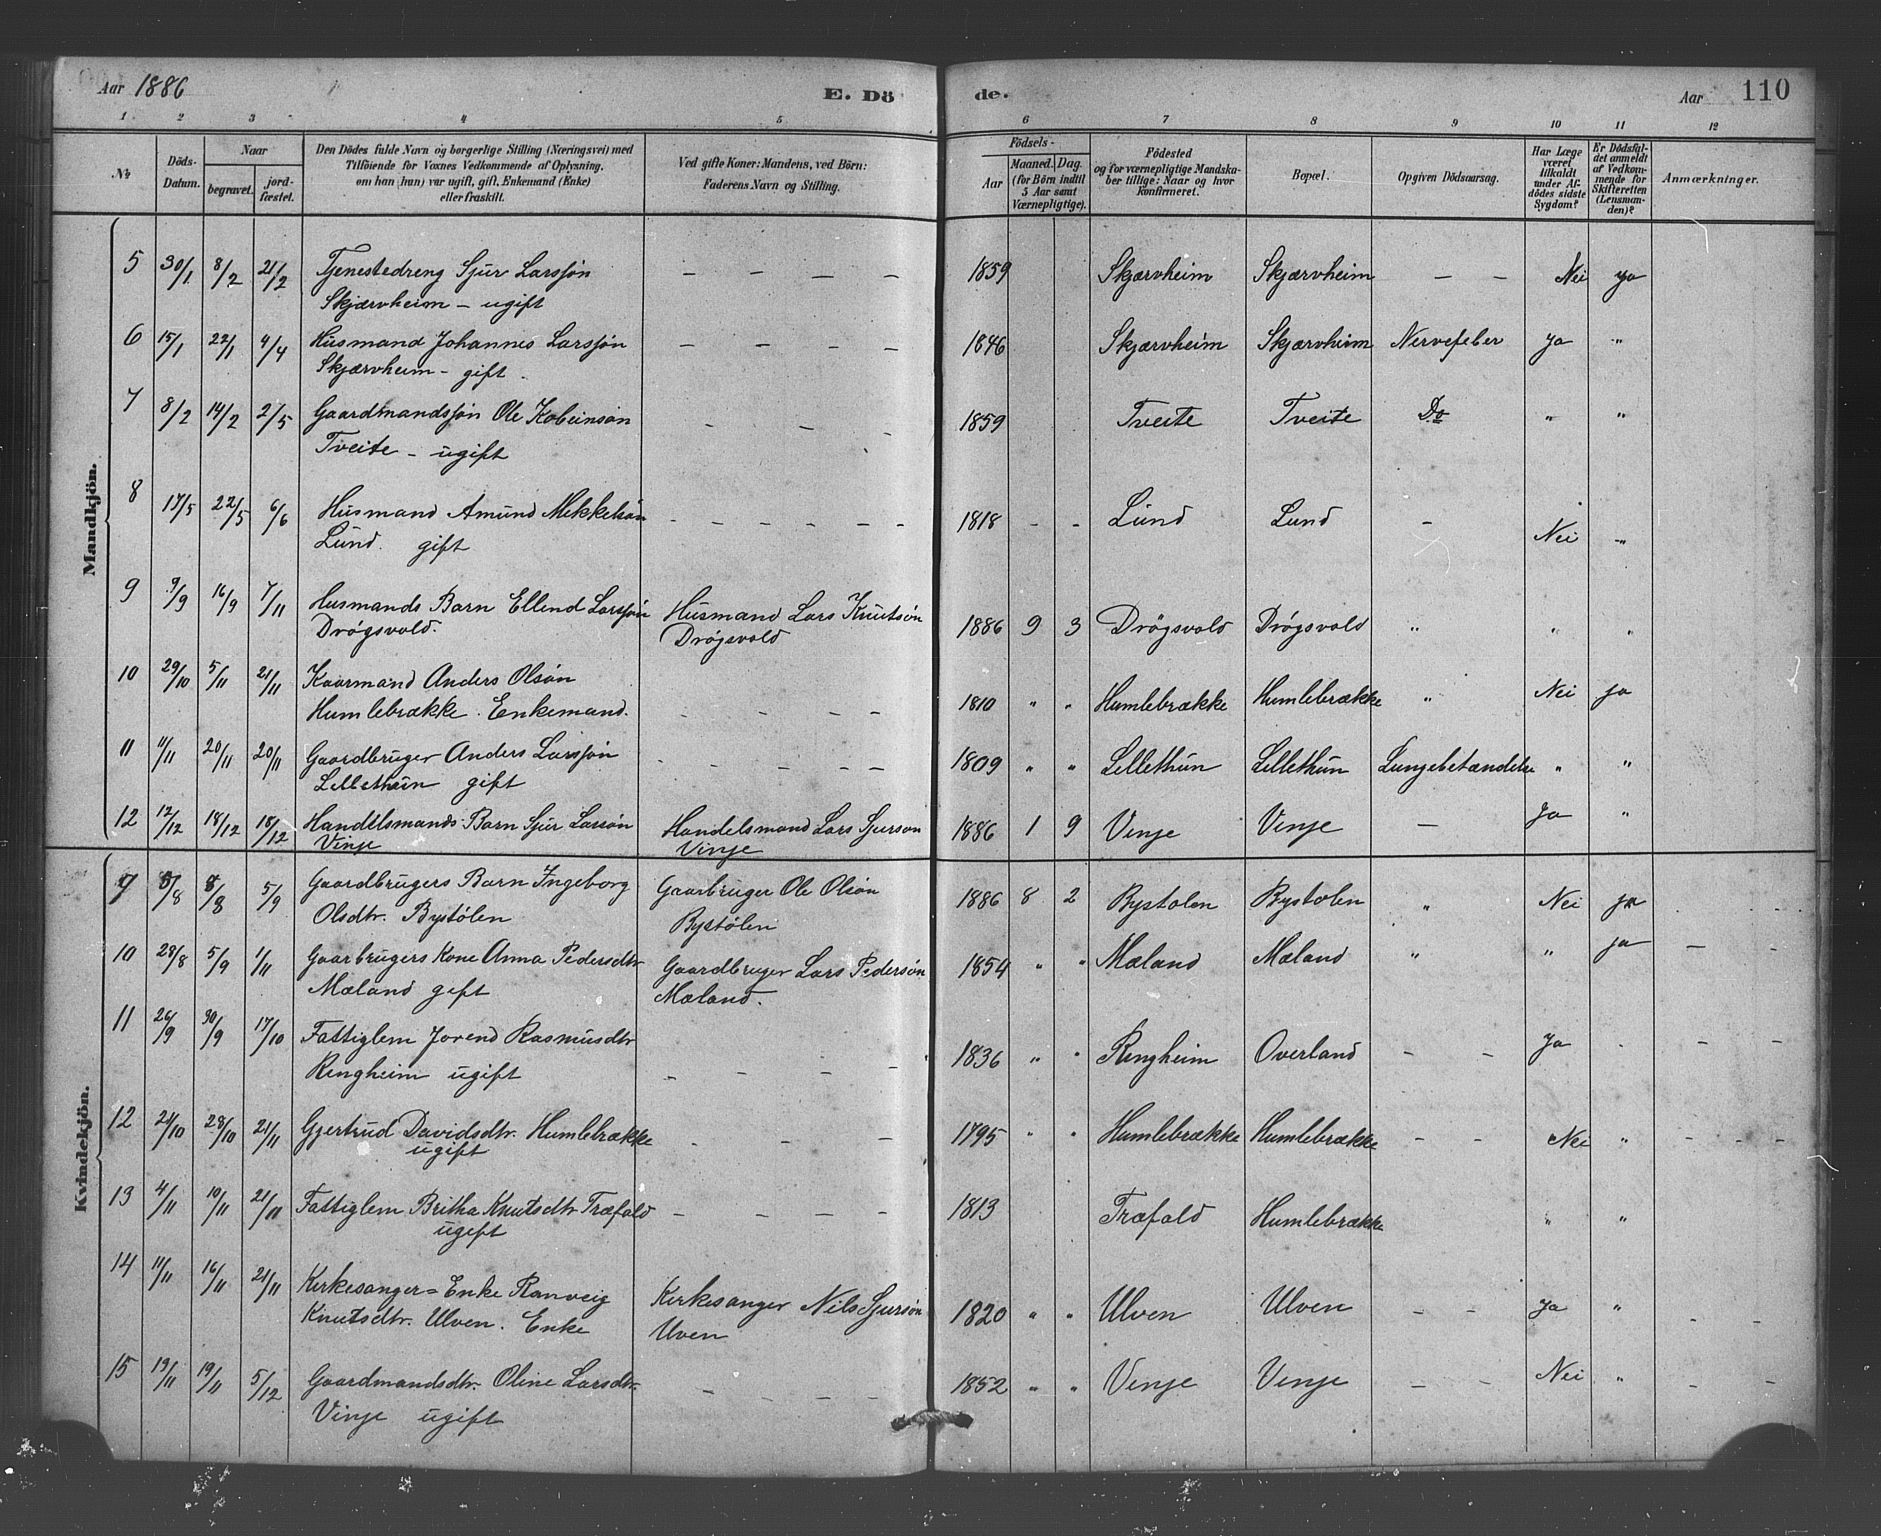 Aar 1886
E. Dö
de.
Aar
110
1 2 3 4 5 6 7 8 9 10 11 12
№
Döds-
Datum.
Naar
begravet.
jord-
fæstet.
Den Dödes fulde Navn og borgerlige Stilling (Næringsvei) med
Tilföiende for Voxnes Vedkommende af Oplysning,
om han (hun) var ugift, gift, Enkemand (Enke)
eller fraskilt.
Ved gifte Koner: Mandens, ved Börn:
Faderens Navn og Stilling.
Födsels-
Aar
Maaned. Dag.
(for Börn indtil
5 Aar samt
Værnepligtige).
Födested
og for værnepligtige Mandska-
ber tillige: Naar og hvor
konfirmeret.
Bopæl.
Opgiven Dödsaarsag.
Har Læge
været
tilkaldt
under Af-
dödes sidste
Sygdom?
Er Dödsfal-
det anmeldt
af Vedkom-
mende for
Skifteretten
(Lensman-
den)?
Anmærkninger.
Mandkjön.
5 30/1 8/2 21/2 Tjenestedreng Sjur Larssøn — — — — 1859 Skjærvheim Skjærvheim — — Nei ja
Skjærvheim – ugift
6 15/1 22/1 4/4 Husmand Johannes Larssøn — — — — 1846 Skjærvheim Skjærvheim Nervefeber ja "
Skjærvheim – gift.
7 8/2 14/2 2/5 Gaardmandssøn Ole Kolbeinsøn – – – 1859 Tveite Tveite Do " "
Tveite – ugift
8 17/5 22/5 6/6 Husmand Amund Mikkelsøn – – – – – – 1818 – – Lund Lund – Nei "
Lund. gift
9 9/9 16/9 7/11 Husmands Barn Ellend Larssøn Husmand Lars Knutsøn 1886 9 3 Drøgsvold Drøgsvold " " "
Drøgsvold. Drøgsvold
10 29/10 5/11 21/11 Kaarmand Anders Olsøn
Humlebrække. Enkemand. – – – – 1810 " " Humlebrække Humlebrække " Nei ja
11 11/11 20/11 20/11 Gaardbruger Anders Larssøn – – – – 1809 " " Lillethun Lillethun Lungebetændelse " "
Lillethun gift
12 12/12 18/12 18/12 Handelsmands Barn Sjur Larsøn Handelsmand Lars Sjurson 1886 1 9 Vinje Vinje — Ja "
Vinje Vinje
Kvindekjön.
8/8 5/9 Gaardbrugers Barn Ingeborg Gaarbruger Ole Olsøn 1886 8 2 Bystolen Bystolen " Nei ja
Olsdtr. Bystølen Bystølen
10 28/8 5/9 1/11 Gaarbrugers Kone Anna Pedersdtr Gaardbruger Lars Pedersøn 1854 " " Mæland Mæland " " ja —
Mæland gift Mæland.
11 26/9 30/9 17/10 Fattiglem Jorend Rasmusdtr 1836 " " Ringheim Overland – – Ja . – –
Ringheim ugift – – – –
12 21/10 28/10 21/11 Gjertrud Davidsdtr. Humlebrække – – – 1795 " " Humlebrække Humlebrække – – Nei " – – –
ugift
13 4/11 10/11 21/11 Fattiglem Britha Knutsdtr Træfald – – – – 1813 Træfald Humlebrække " "
ugift
14 11/11 16/11 21/11 Kirkesanger=Enke Ranveig Kirkesanger Nils Sjursøn 1820 " " Ulven Ulven – – Ja " – –
Knutsdtr. Ulven. Enke Uven
15 13/11 19/11 5/12 Gaardmandsdtr. Oline Larsdtr. – – – – 1852 " " Vinje Vinje – – Nei " – –
Vinje ugift